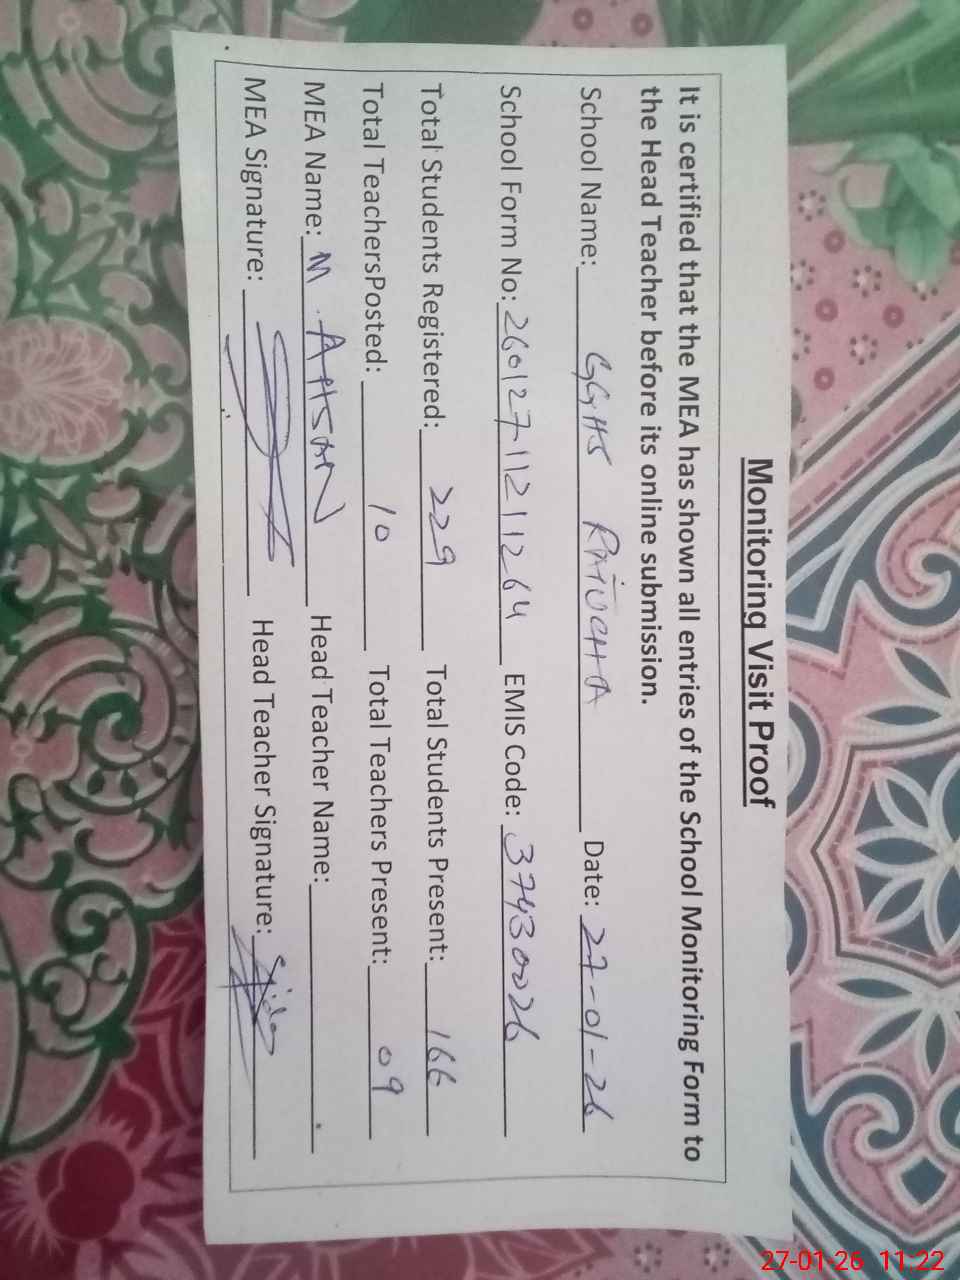 Monitoring Visit Proof
It is certified that the MEA has shown all entries of the School Monitoring Form to
the Head Teacher before its online submission.
School Name: GGHS RATUCHA Date: 27-01-26
School Form No: 26012711211264 EMIS Code: 37430026
Total Students Registered: 229 Total Students Present: 166
Total TeachersPosted: 10 Total Teachers Present: 09
MEA Name: M. AHSAN Head Teacher Name:
MEA Signature: Head Teacher Signature:
27-01-26 11:22